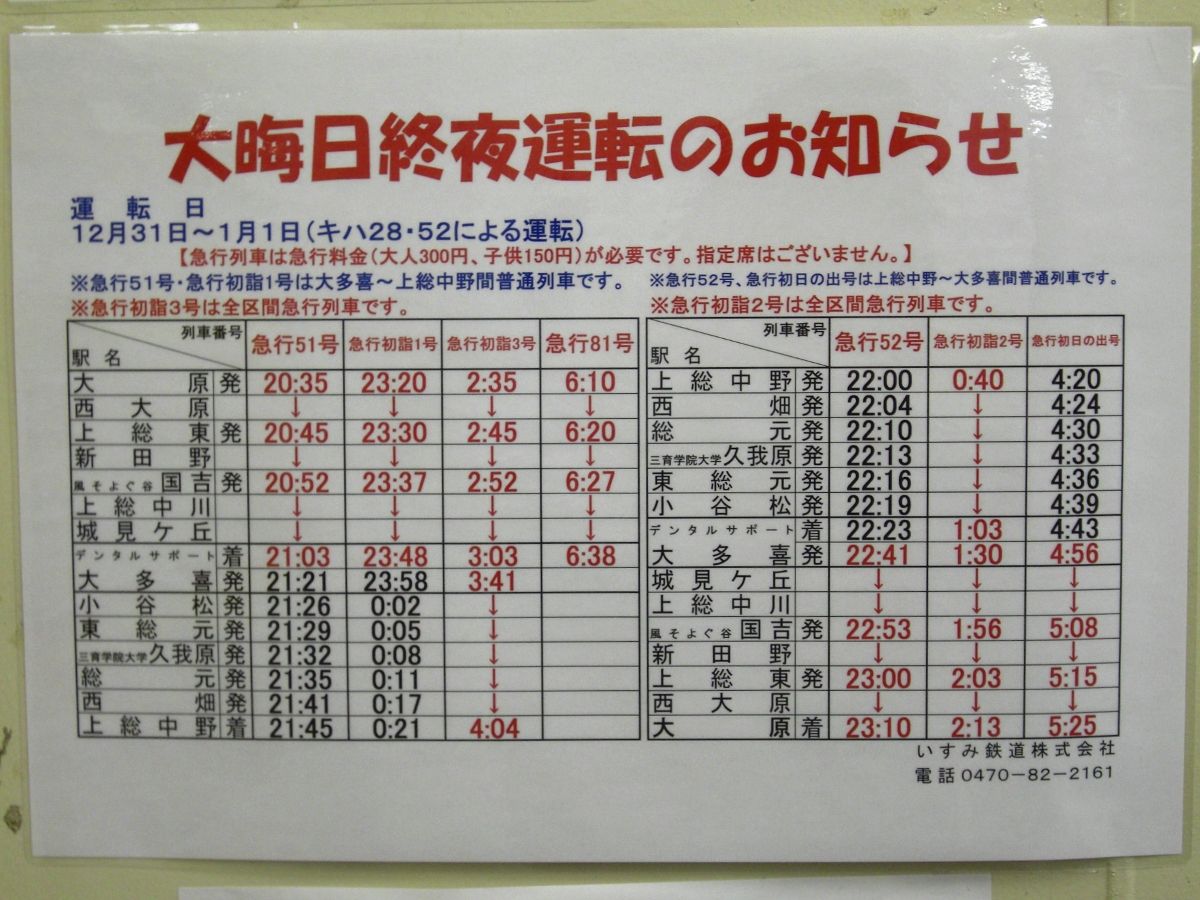 大晦日終夜運転のお知らせ
運転日
12月31日～1月1日(キハ28・52による運転)
【急行列車は急行料金(大人300円、子供150円)が必要です。指定席はございません。】
※急行51号・急行初詣1号は大多喜～上総中野間普通列車です。
※急行初詣3号は全区間急行列車です。
列車番号 急行51号 急行初詣1号 急行初詣3号 急行81号
駅名
大原 発 20:35 23:20 2:35 6:10
西大原 ↓ ↓ ↓ ↓
上総東 発 20:45 23:30 2:45 6:20
新田野 ↓ ↓ ↓ ↓
風そよぐ谷 国吉 発 20:52 23:37 2:52 6:27
上総中川 ↓ ↓ ↓ ↓
城見ケ丘 ↓ ↓ ↓ ↓
デンタルサポート 着 21:03 23:48 3:03 6:38
大多喜 発 21:21 23:58 3:41
小谷松 発 21:26 0:02 ↓
東総元 発 21:29 0:05 ↓
三育学院大学 久我原 発 21:32 0:08 ↓
総元 発 21:35 0:11 ↓
西畑 発 21:41 0:17 ↓
上総中野 着 21:45 0:21 4:04
※急行52号、急行初日の出号は上総中野～大多喜間普通列車です。
※急行初詣2号は全区間急行列車です。
列車番号 急行52号 急行初詣2号 急行初日の出号
駅名
上総中野 発 22:00 0:40 4:20
西畑 発 22:04 ↓ 4:24
総元 発 22:10 ↓ 4:30
三育学院大学 久我原 発 22:13 ↓ 4:33
東総元 発 22:16 ↓ 4:36
小谷松 発 22:19 ↓ 4:39
デンタルサポート 着 22:23 1:03 4:43
大多喜 発 22:41 1:30 4:56
城見ケ丘 ↓ ↓ ↓
上総中川 ↓ ↓ ↓
風そよぐ谷 国吉 発 22:53 1:56 5:08
新田野 ↓ ↓ ↓
上総東 発 23:00 2:03 5:15
西大原 ↓ ↓ ↓
大原 着 23:10 2:13 5:25
いすみ鉄道株式会社
電話0470-82-2161